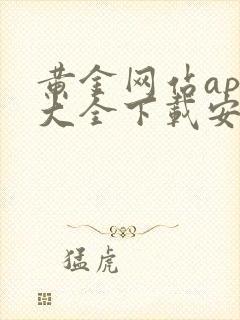 黄金网站ap
大全下载安
猛虎